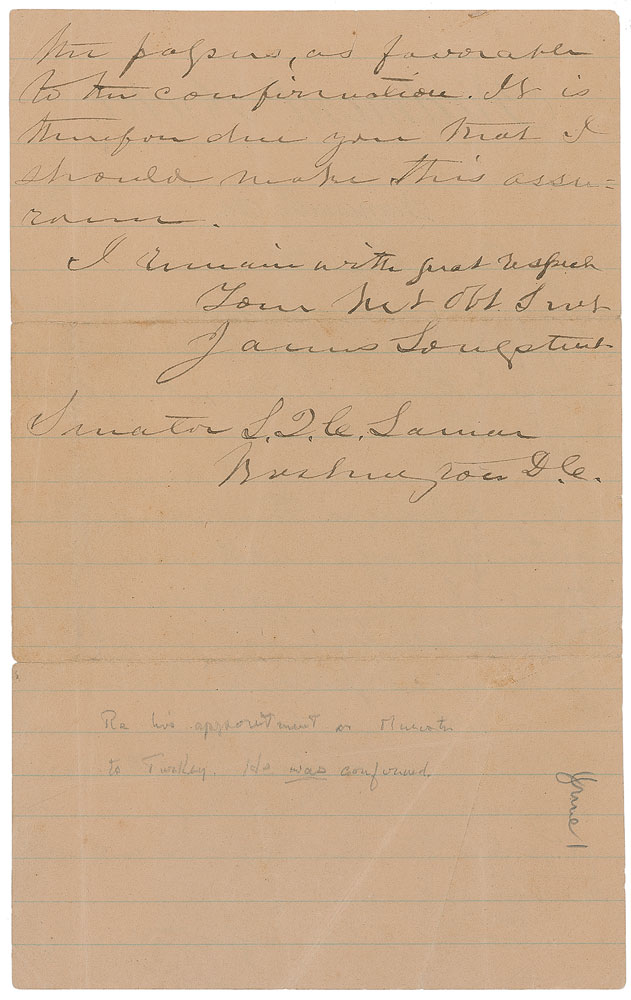 the papers, as favorable
to the confirmation. It is
therefore due you that I
should make this assu=
rance.
I remain with great respect
Your Mst Obt Svt
James Longstreet
Senator L.Q.C. Lamar
Washington D.C.
Re his appointment as Minister
to Turkey. He was confirmed.
June 1